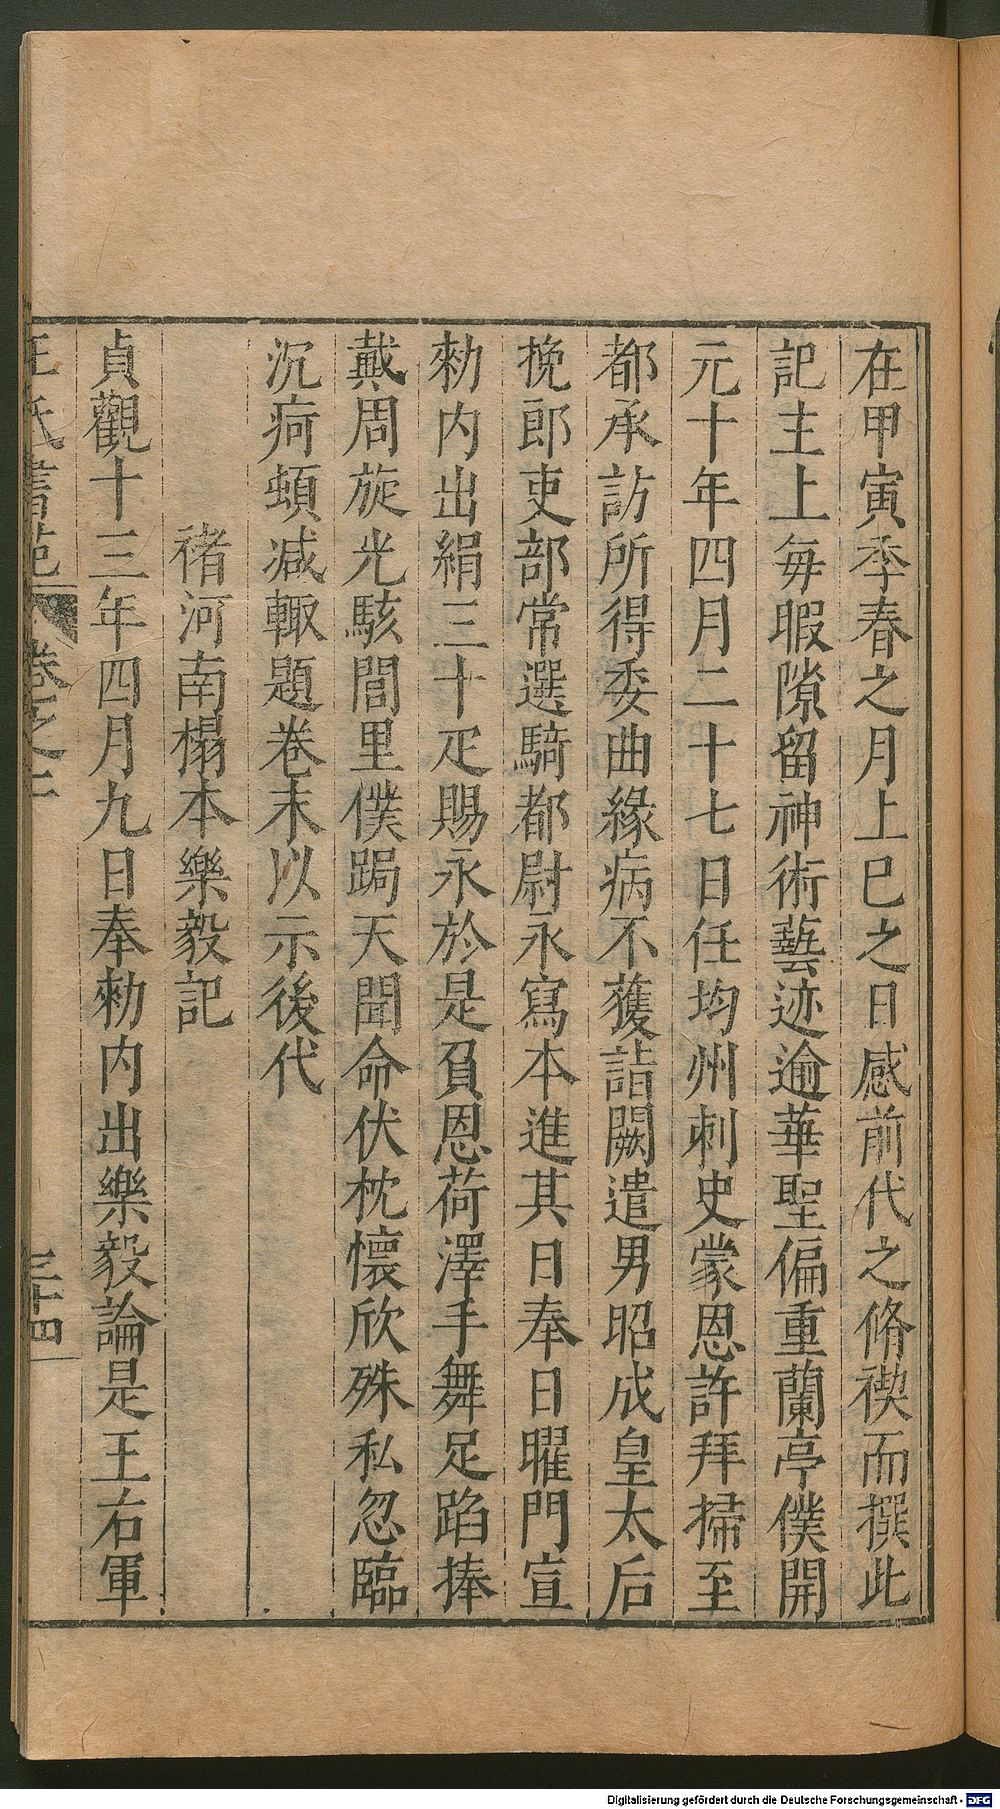 在甲寅季春之月上巳之日感前代之脩禊而撰此
記主上每暇隙留神術藝迹逾華聖偏重蘭亭僕開
元十年四月二十七日任均州刺史蒙恩許拜掃至
都承訪所得委曲緣病不獲詣闕遣男昭成皇太后
挽郎吏部常選騎都尉永寫本進其日奉日曜門宣
勑内出絹三十疋賜永於是負恩荷澤手舞足蹈捧
戴周旋光駭閭里僕跼天聞命伏枕懷欣殊私忽臨
沉痾頓减輙題卷末以示後代
褚河南榻本樂毅記
貞觀十三年四月九日奉勑内出樂毅論是王右軍
王氏書苑 卷之二 三十四
Digitalisierung gefördert durch die Deutsche Forschungsgemeinschaft - DFG